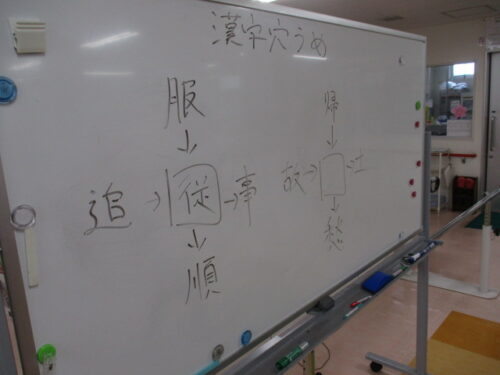 漢字穴うめ
服
↓
追→従→事
↓
順
帰
↓
故→□→土
↓
愁